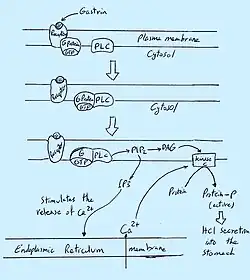 Gastrin
Receptor
G Protein
GTP
PLC
Plasma membrane
Cytosol
Receptor
G Protein
GTP
PLC
Cytosol
Receptor
G
GTP
PLC
PIP2
DAG
Kinase
IP3
Stimulates the
release of Ca2+
Protein
Protein-P
(active)
HCl secretion
into the
stomach
Ca2+
Endoplasmic Reticulum
membrane